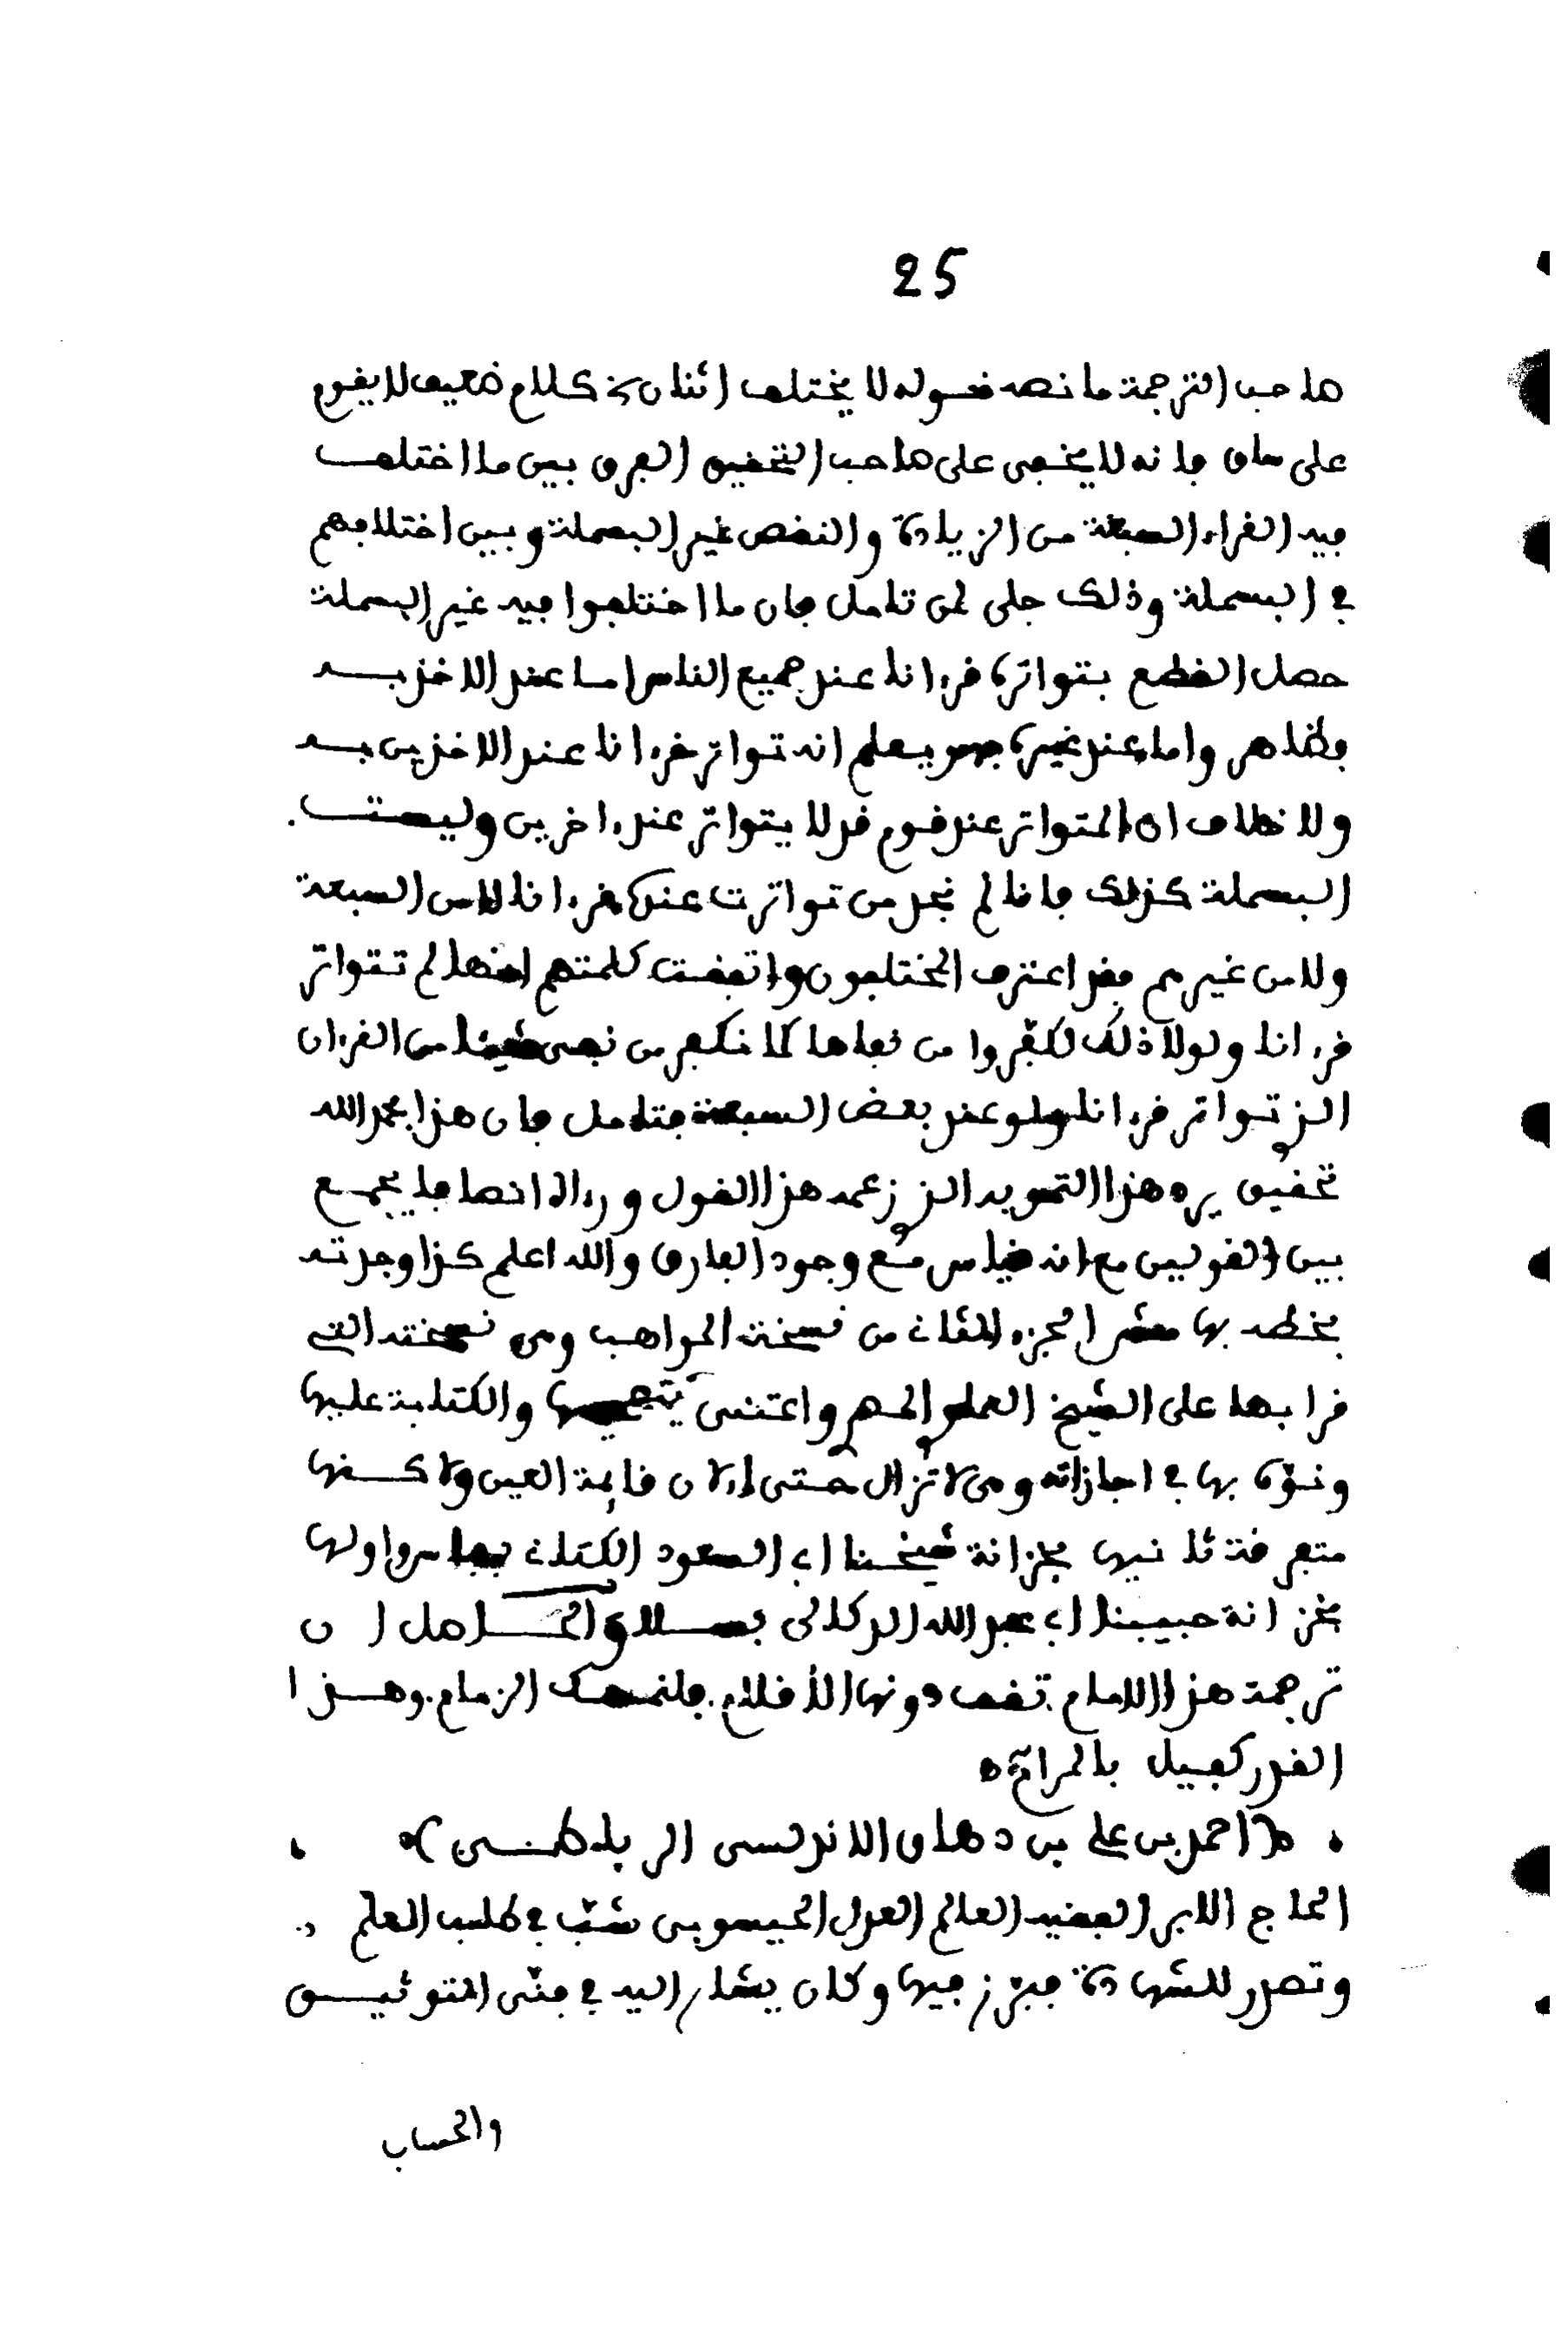 25
صاحب الترجمة ما نصه قوله لا يختلف اثنان كلام ضعيف لا يقوم
على ساق فانه لا يخفى على صاحب التحقيق الفرق بين ما اختلف
فيه القراء السبعة من الزيادة والنقص غير البسملة وبين اختلافهم
في البسملة وذلك جلي لمن تامل فان ما اختلفوا فيه غير البسملة
حصل القطع بتواتره قرءانا عند جميع الناس اما عند الاخذ به
فظاهر واما عند غيره فهو يعلم انه تواتر قرءانا عند الاخذين به
ولا خلاف ان المتواتر عند قوم قد لا يتواتر عند ءاخرين وليست
البسملة كذلك فانا لم نجد من تواترت عنده قرءانا لا من السبعة
ولا من غيرهم فقد اعترف المختلفون واتفقت كلمتهم انها لم تتواتر
قرءانا ولولا ذلك لكفّروا من نفاها كما نكفر من نفى شيئا من القرءان
الذي تواتر قرءانا ولو عند بعض السبعة فتامل فان هذا بحمد الله
تحقيق يرد هذا التمويه الذي زعمه هذا القول وراءا انصافا يجمع
بين القولين مع انه قياس مع وجود الفارق والله اعلم كذا وجدته
بخطه بها مش الجزء الثاني من نسخة المواهب ومن نسخته التي
قرا بها على الشيخ العملو المصر واعتنى بتصحيحها والكتابة عليها
ونوّه بها في اجازاته وهي لا تزال حتى الان قايمة العين ولاكنها
متفرقة ثانيها بخزانة شيخنا ابي السعود الكتاني بفاس واولها
بخزانة حبيبنا ابي عبد الله الدكالي بسلا والحاصل ان
ترجمة هذا الامام. تقف دونها الأقلام. فلنمسك الزمام. وهذا
القدر كفيل بالمرام
(احمد بن علي بن دهاق الاندلسي الرباطي)
الحاج الابر الفقيه العالم العدل الحيسوبي شبّ في طلب العلم
وتصدر للشهادة فبرّز فيها وكان يشار اليه في فنّى التوثيق
والحساب